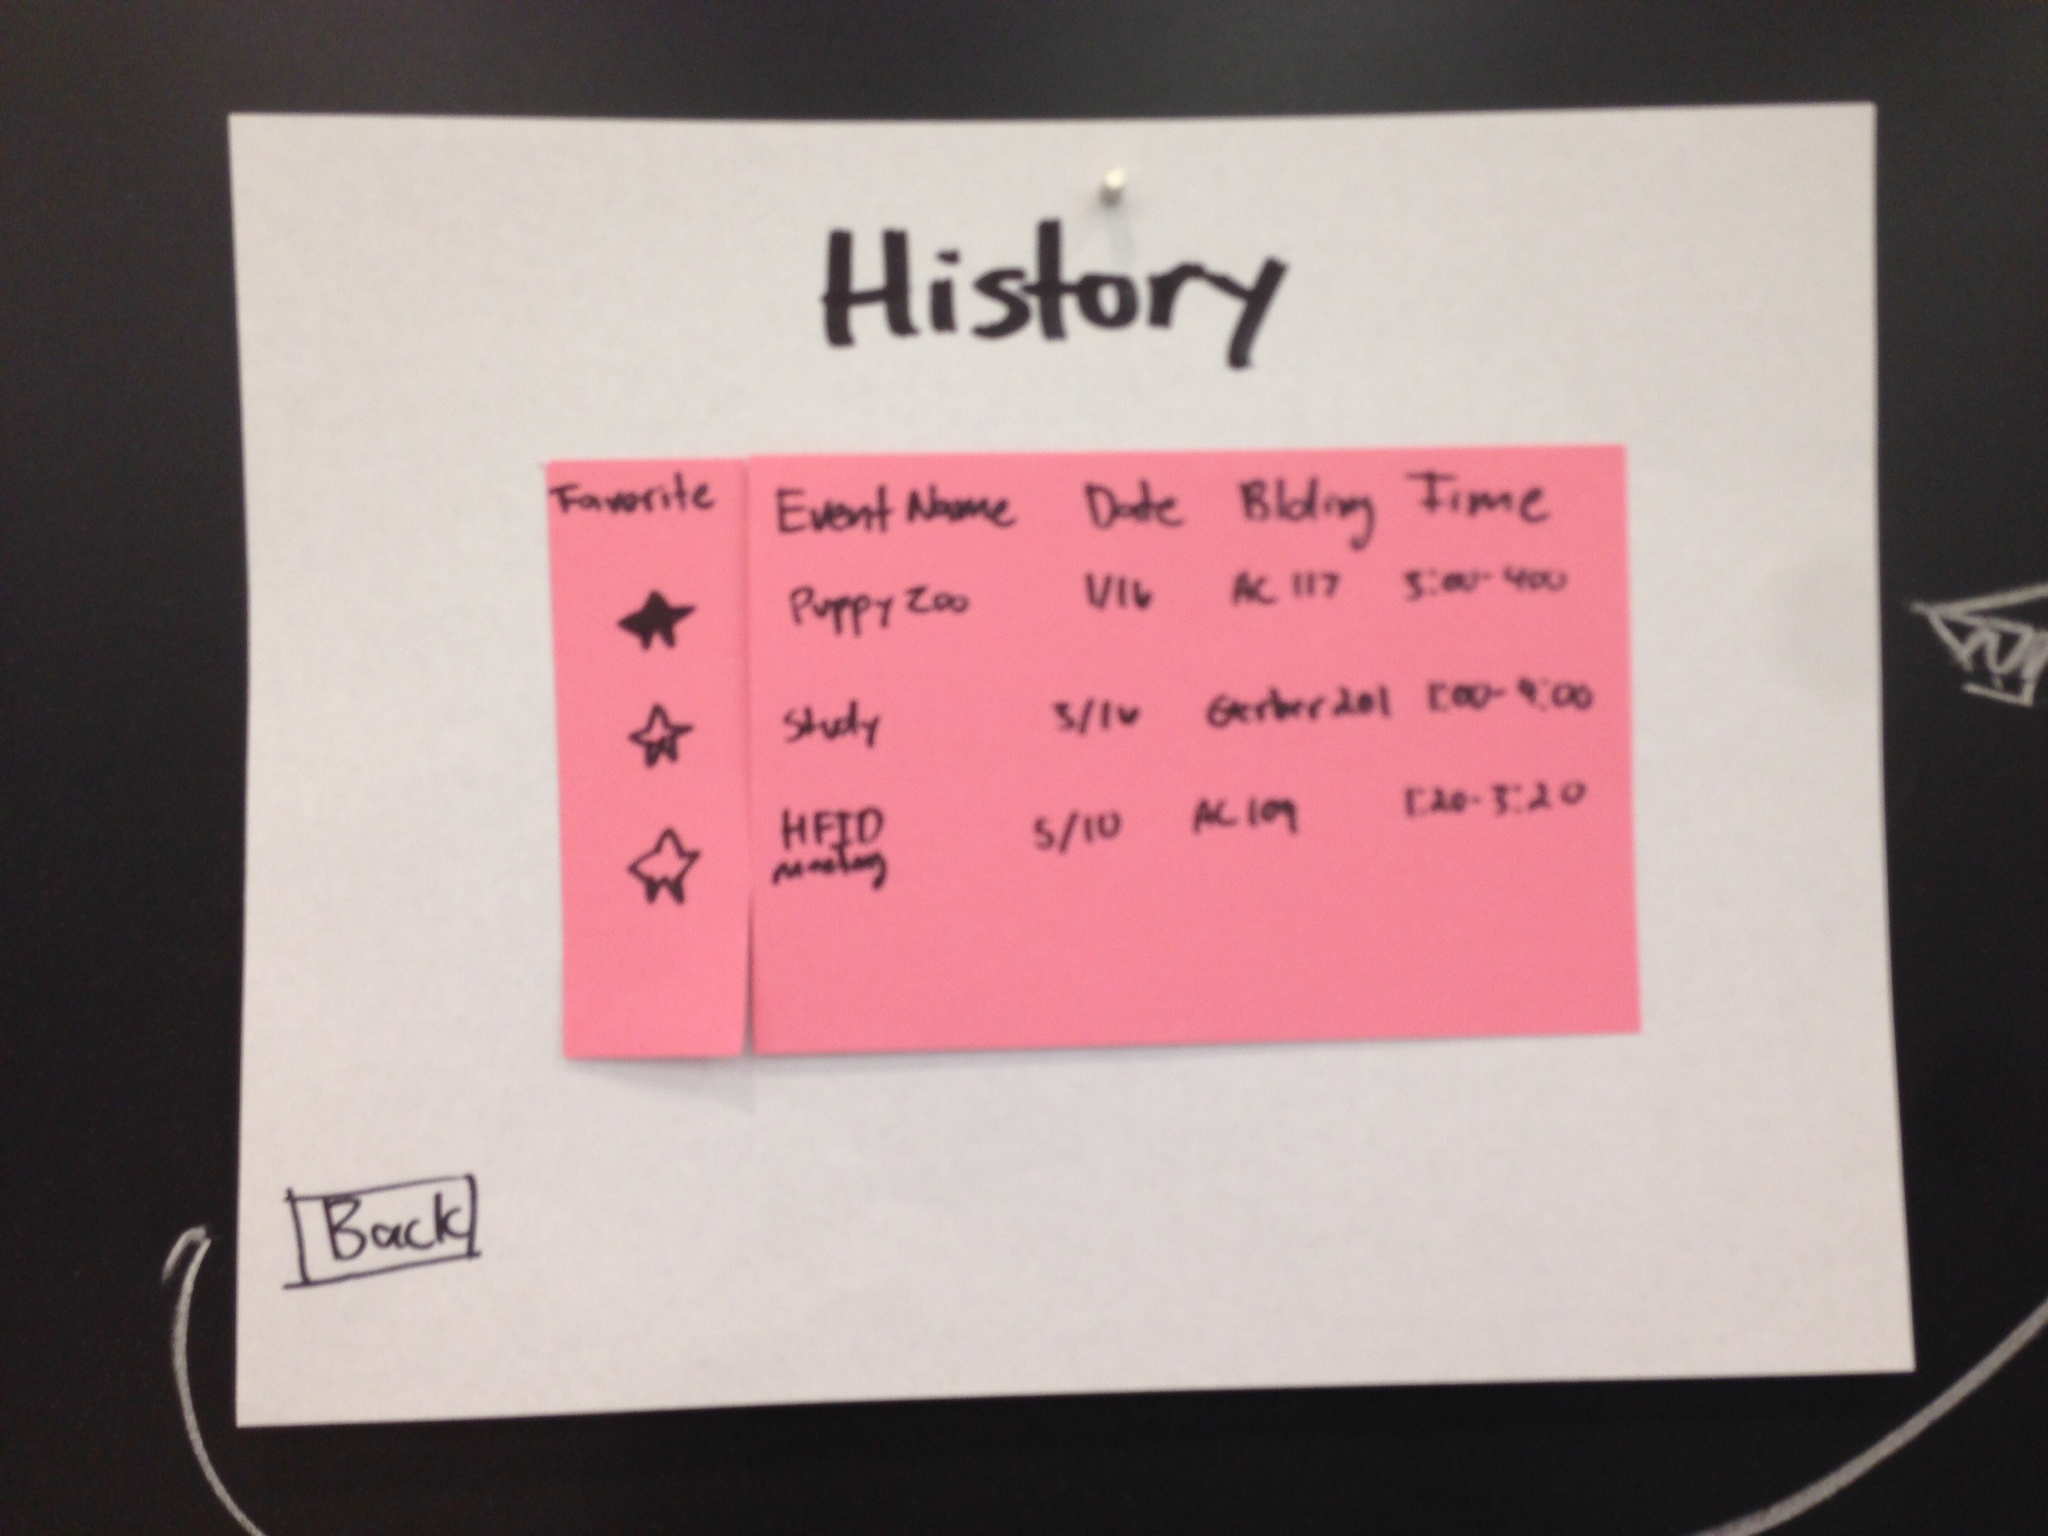 History
Favorite Event Name Date Blding Time
Puppy Zoo 1/16 AC 117 3:00-4:00
Study 3/16 Gerber 201 1:00-4:00
HFID 5/10 AC 109 1:20-3:20
meeting
Back